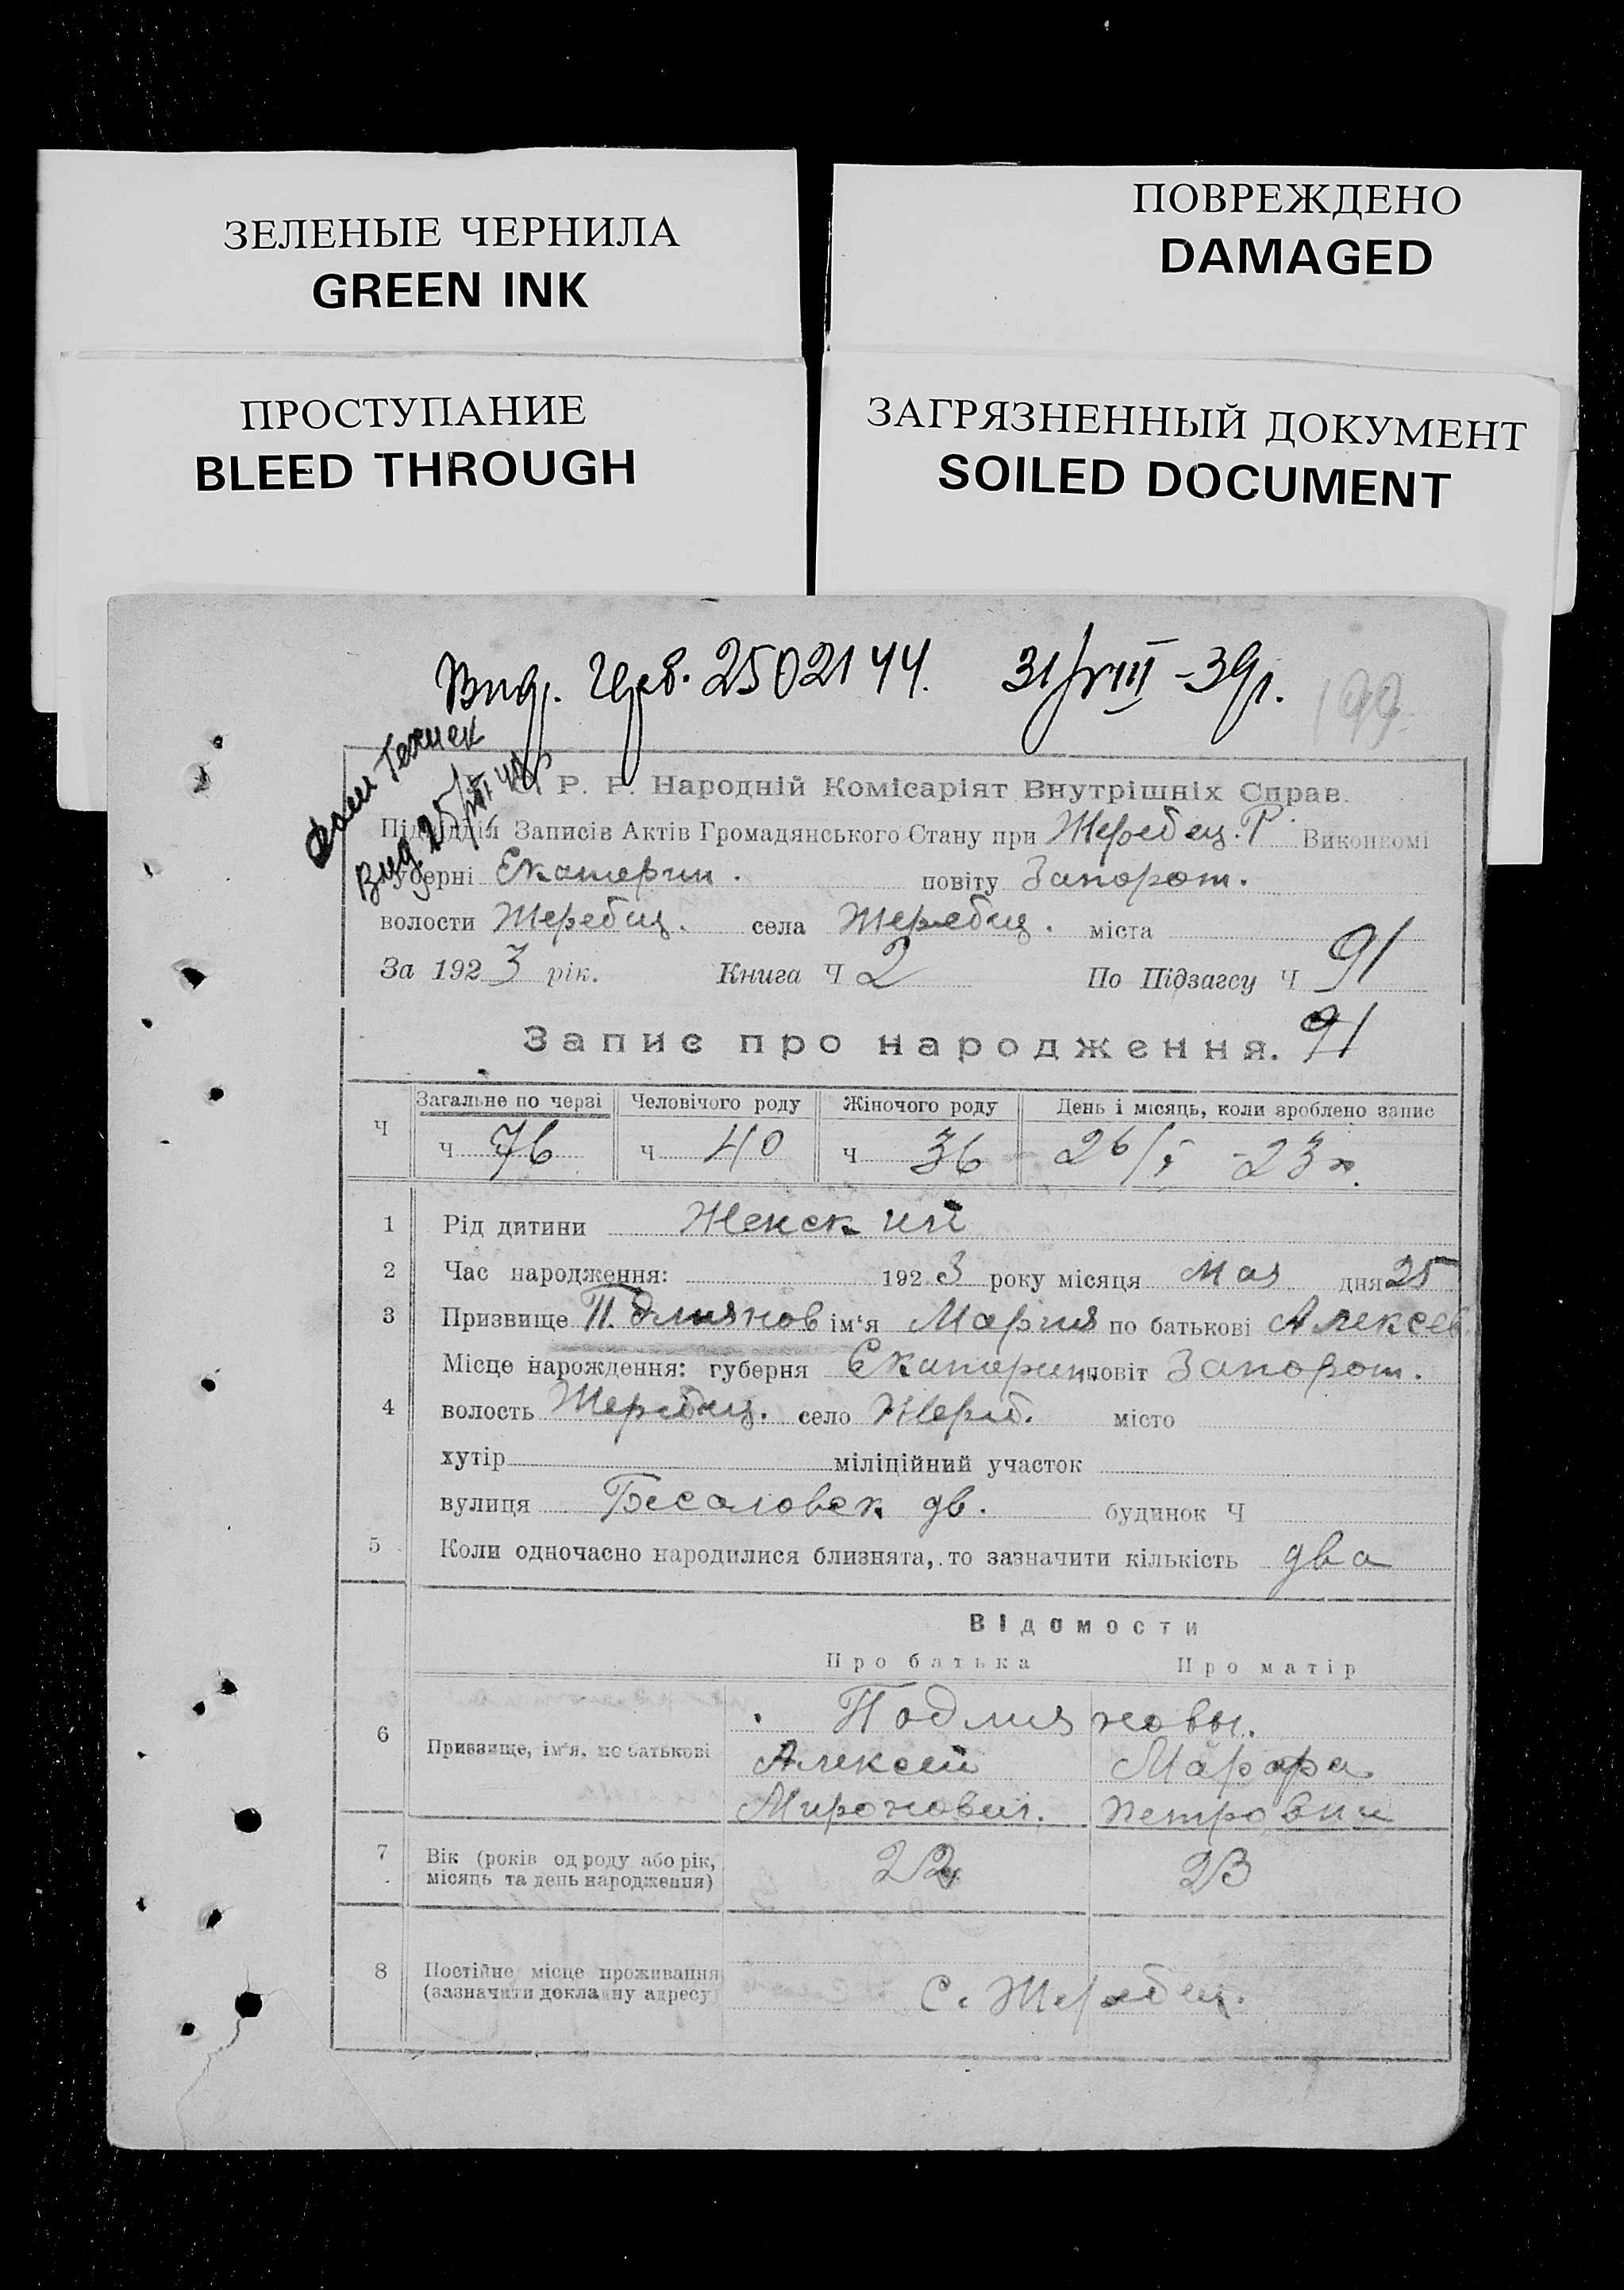 ЗЕЛЕНЫЕ ЧЕРНИЛА
GREEN INK
ПОВРЕЖДЕНО
DAMAGED
ПРОСТУПАНИЕ
BLEED THROUGH
ЗАГРЯЗНЕННЫЙ ДОКУМЕНТ
SOILED DOCUMENT
2502144. 31/VIII-39р.
199
Р. Народній Комісаріят Внутрішніх Справ.
Підвідділ Записів Актів Громадянського Стану при Жеребец. Р. Виконкомі
губерні Екатерин. повіту Запорож.
волости Жеребец. села Жеребец. міста
За 1923 рік. Книга Ч 2 По Підзагсу Ч 91
Запис про народження. 91
Ч Загальне по черзі Человічого роду Жіночого роду День і місяць, коли зроблено запис
ч 76 ч 40 ч 36 26/V -23 г.
1 Рід дитини Женский
2 Час народження: 1923 року місяця Мая дня 25
3 Призвище Подлиянов ім'я Мария по батькові Алексев
Місце нарождення: губерня Екатерин повіт Запорож.
4 волость Жеребец. село Жереб. місто
хутір міліційний участок
вулиця дв. будинок Ч
5 Коли одночасно народилися близнята, то зазначити кількість два
Відомости
Про батька Про матір
6 Призвище, ім'я, по батькові
Подлияновы.
Алексей
Миронович. Петровна
7 Вік (років од роду або рік, місяць та день народження) 22 23
8 Постійне місце проживання (зазначити докладну адресу) с. Жеребец.